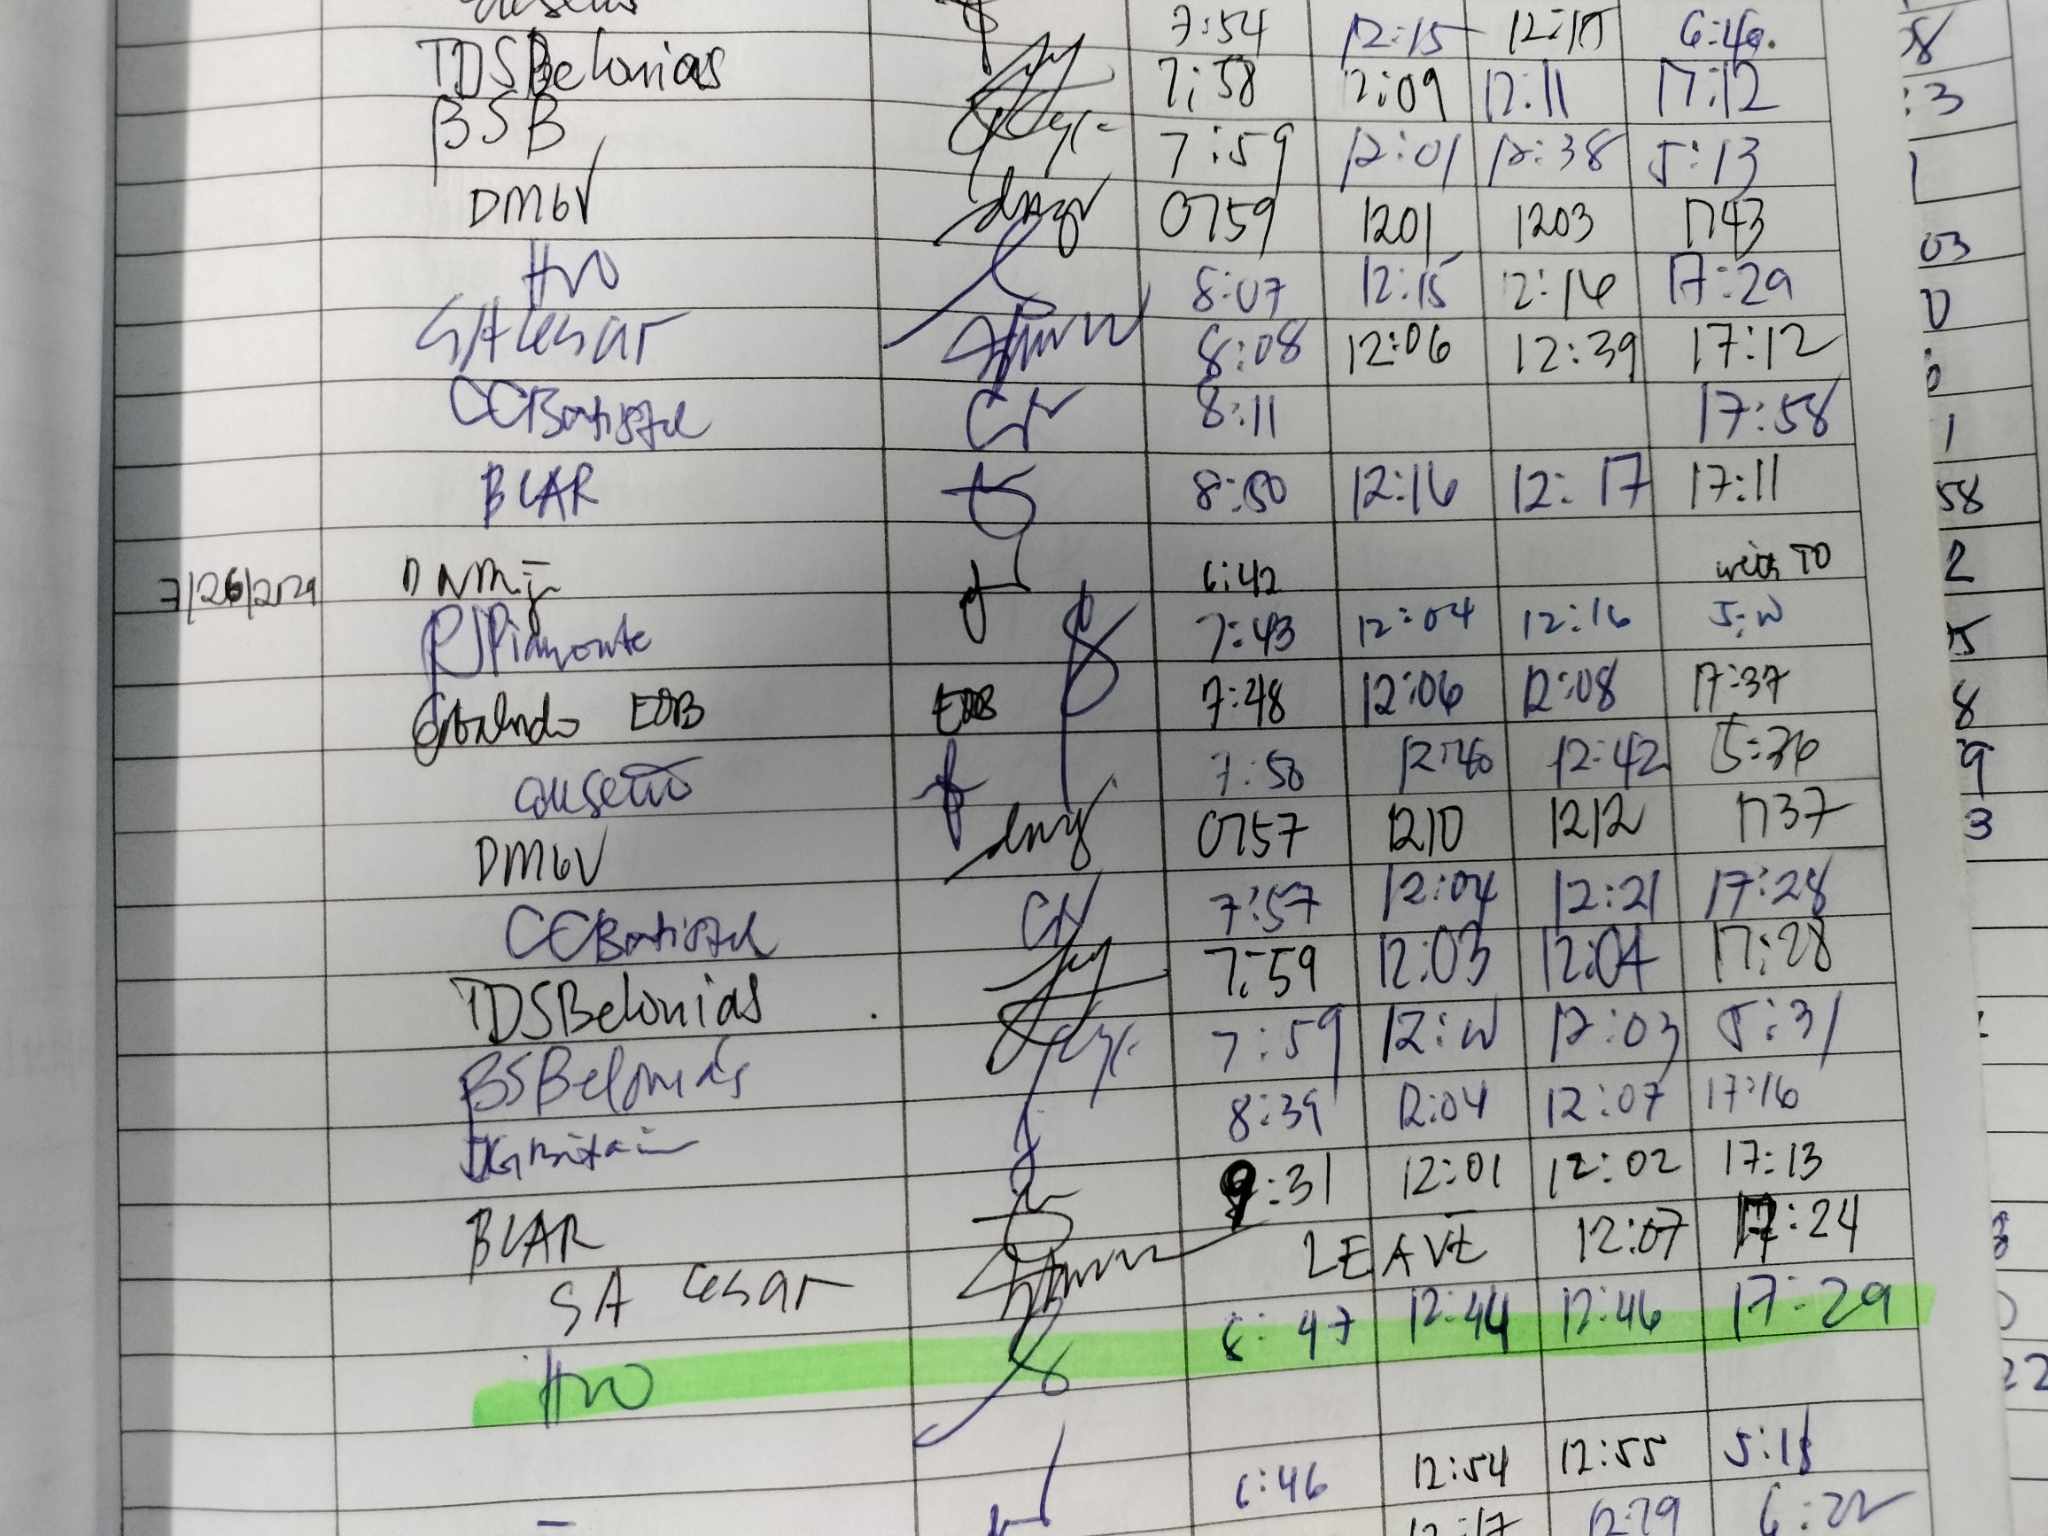 7:54 12:15 12:17 6:46.
TDSBelonias 7:58 12:09 12:11 17:12
BSB 7:59 12:01 12:38 5:13
DMGV dmgv 0759 1201 1203 1743
HVO 8:07 12:15 12:16 17:29
SACesar 8:08 12:06 12:39 17:12
CCBautista 8:11 17:58
BLAR 8:50 12:16 12:17 17:11
7/26/2024 6:42 with TO
RJPiamonte 7:43 12:04 12:16 5:10
EOB EOB 7:48 12:06 12:08 17:37
7:50 12:40 12:42 5:36
DMGV dmgv 0757 1210 1212 1737
CCBautista 7:57 12:04 12:21 17:28
TDSBelonias 7:59 12:03 12:04 17:28
BSBelonias 7:59 12:10 12:03 5:31
8:39 12:04 12:07 17:16
BLAR 9:31 12:01 12:02 17:13
SA Cesar LEAVE 12:07 17:24
HVO 8:47 12:44 12:46 17:29
6:46 12:54 12:55 5:18
12:17 12:29 6:22